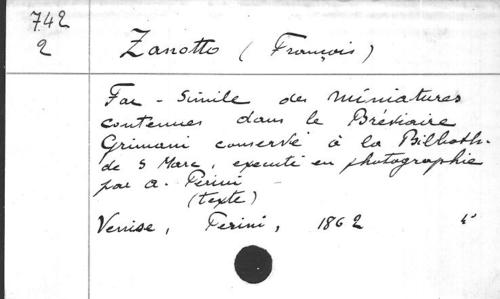 742
2
Zanotto (François)
Fac-Simile des Miniatures
contenues dans le Bréviaire
Grimani conservé à la Biblioth.
de S Marc, executé en photographie
par A. Perini
(texte)
Venise, Perini, 1862 4°